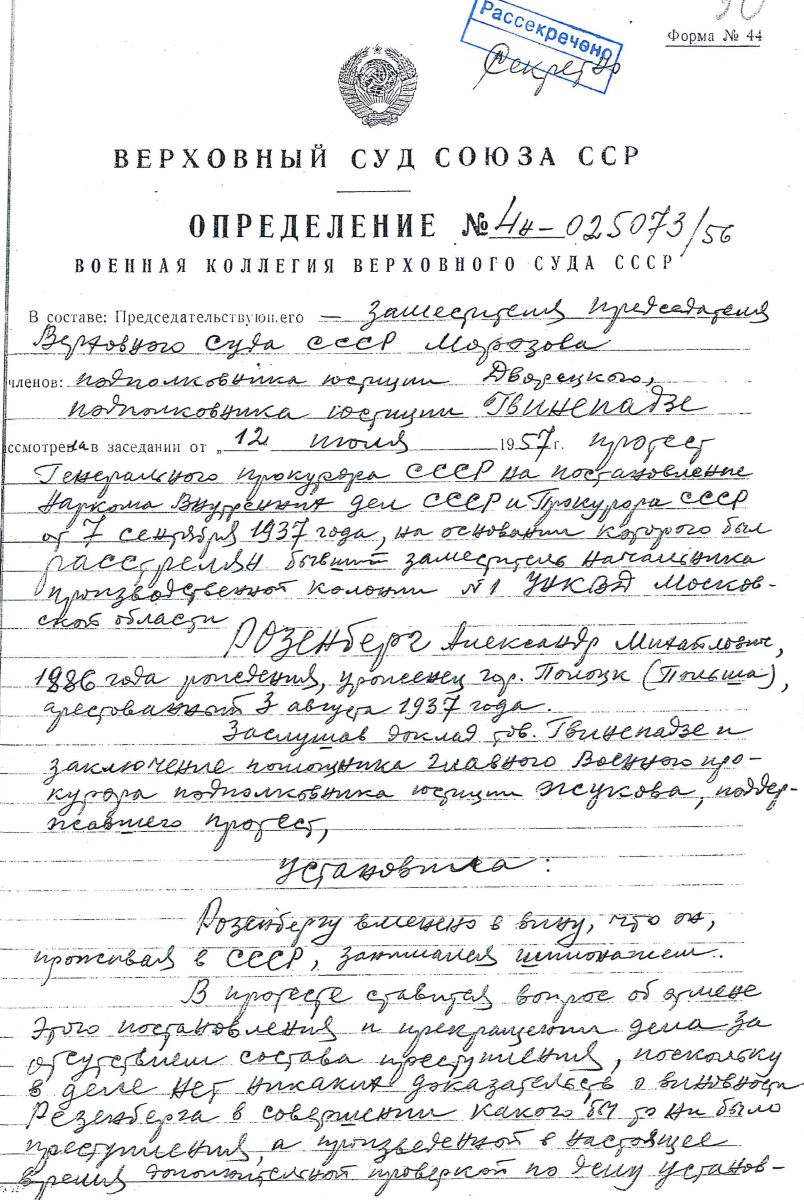 Рассекречено
Форма № 44
Секретно
ВЕРХОВНЫЙ СУД СОЮЗА ССР
ОПРЕДЕЛЕНИЕ № 4н-025073/56
ВОЕННАЯ КОЛЛЕГИЯ ВЕРХОВНОГО СУДА СССР
В составе: Председательствующего — заместителя председателя
Верховного суда СССР Морозова
членов: подполковника юстиции Дворецкого,
подполковника юстиции Гвинепадзе
ссмотрена в заседании от „12 июля 1957 г. протест
Генерального прокурора СССР на постановление
Наркома Внутренних дел СССР и Прокурора СССР
от 7 сентября 1937 года, на основании которого был
расстрелян бывший заместитель начальника
производственной колонии №1 УНКВД Москов-
ской области
РОЗЕНБЕРГ Александр Михайлович,
1886 года рождения, уроженец гор. Полоцк (Польша),
арестованный 3 августа 1937 года.
Заслушав доклад тов. Гвинепадзе и
заключение помощника Главного Военного про-
курора подполковника юстиции Жукова, поддер-
жавшего протест,
установила:
Розенбергу вменено в вину, что он,
проживая в СССР, занимался шпионажем.
В протесте ставится вопрос об отмене
этого постановления и прекращении дела за
отсутствием состава преступления, поскольку
в деле нет никаких доказательств о виновности
Розенберга в совершении какого бы то ни было
преступления, а произведенной в настоящее
время дополнительной проверкой по делу установ-